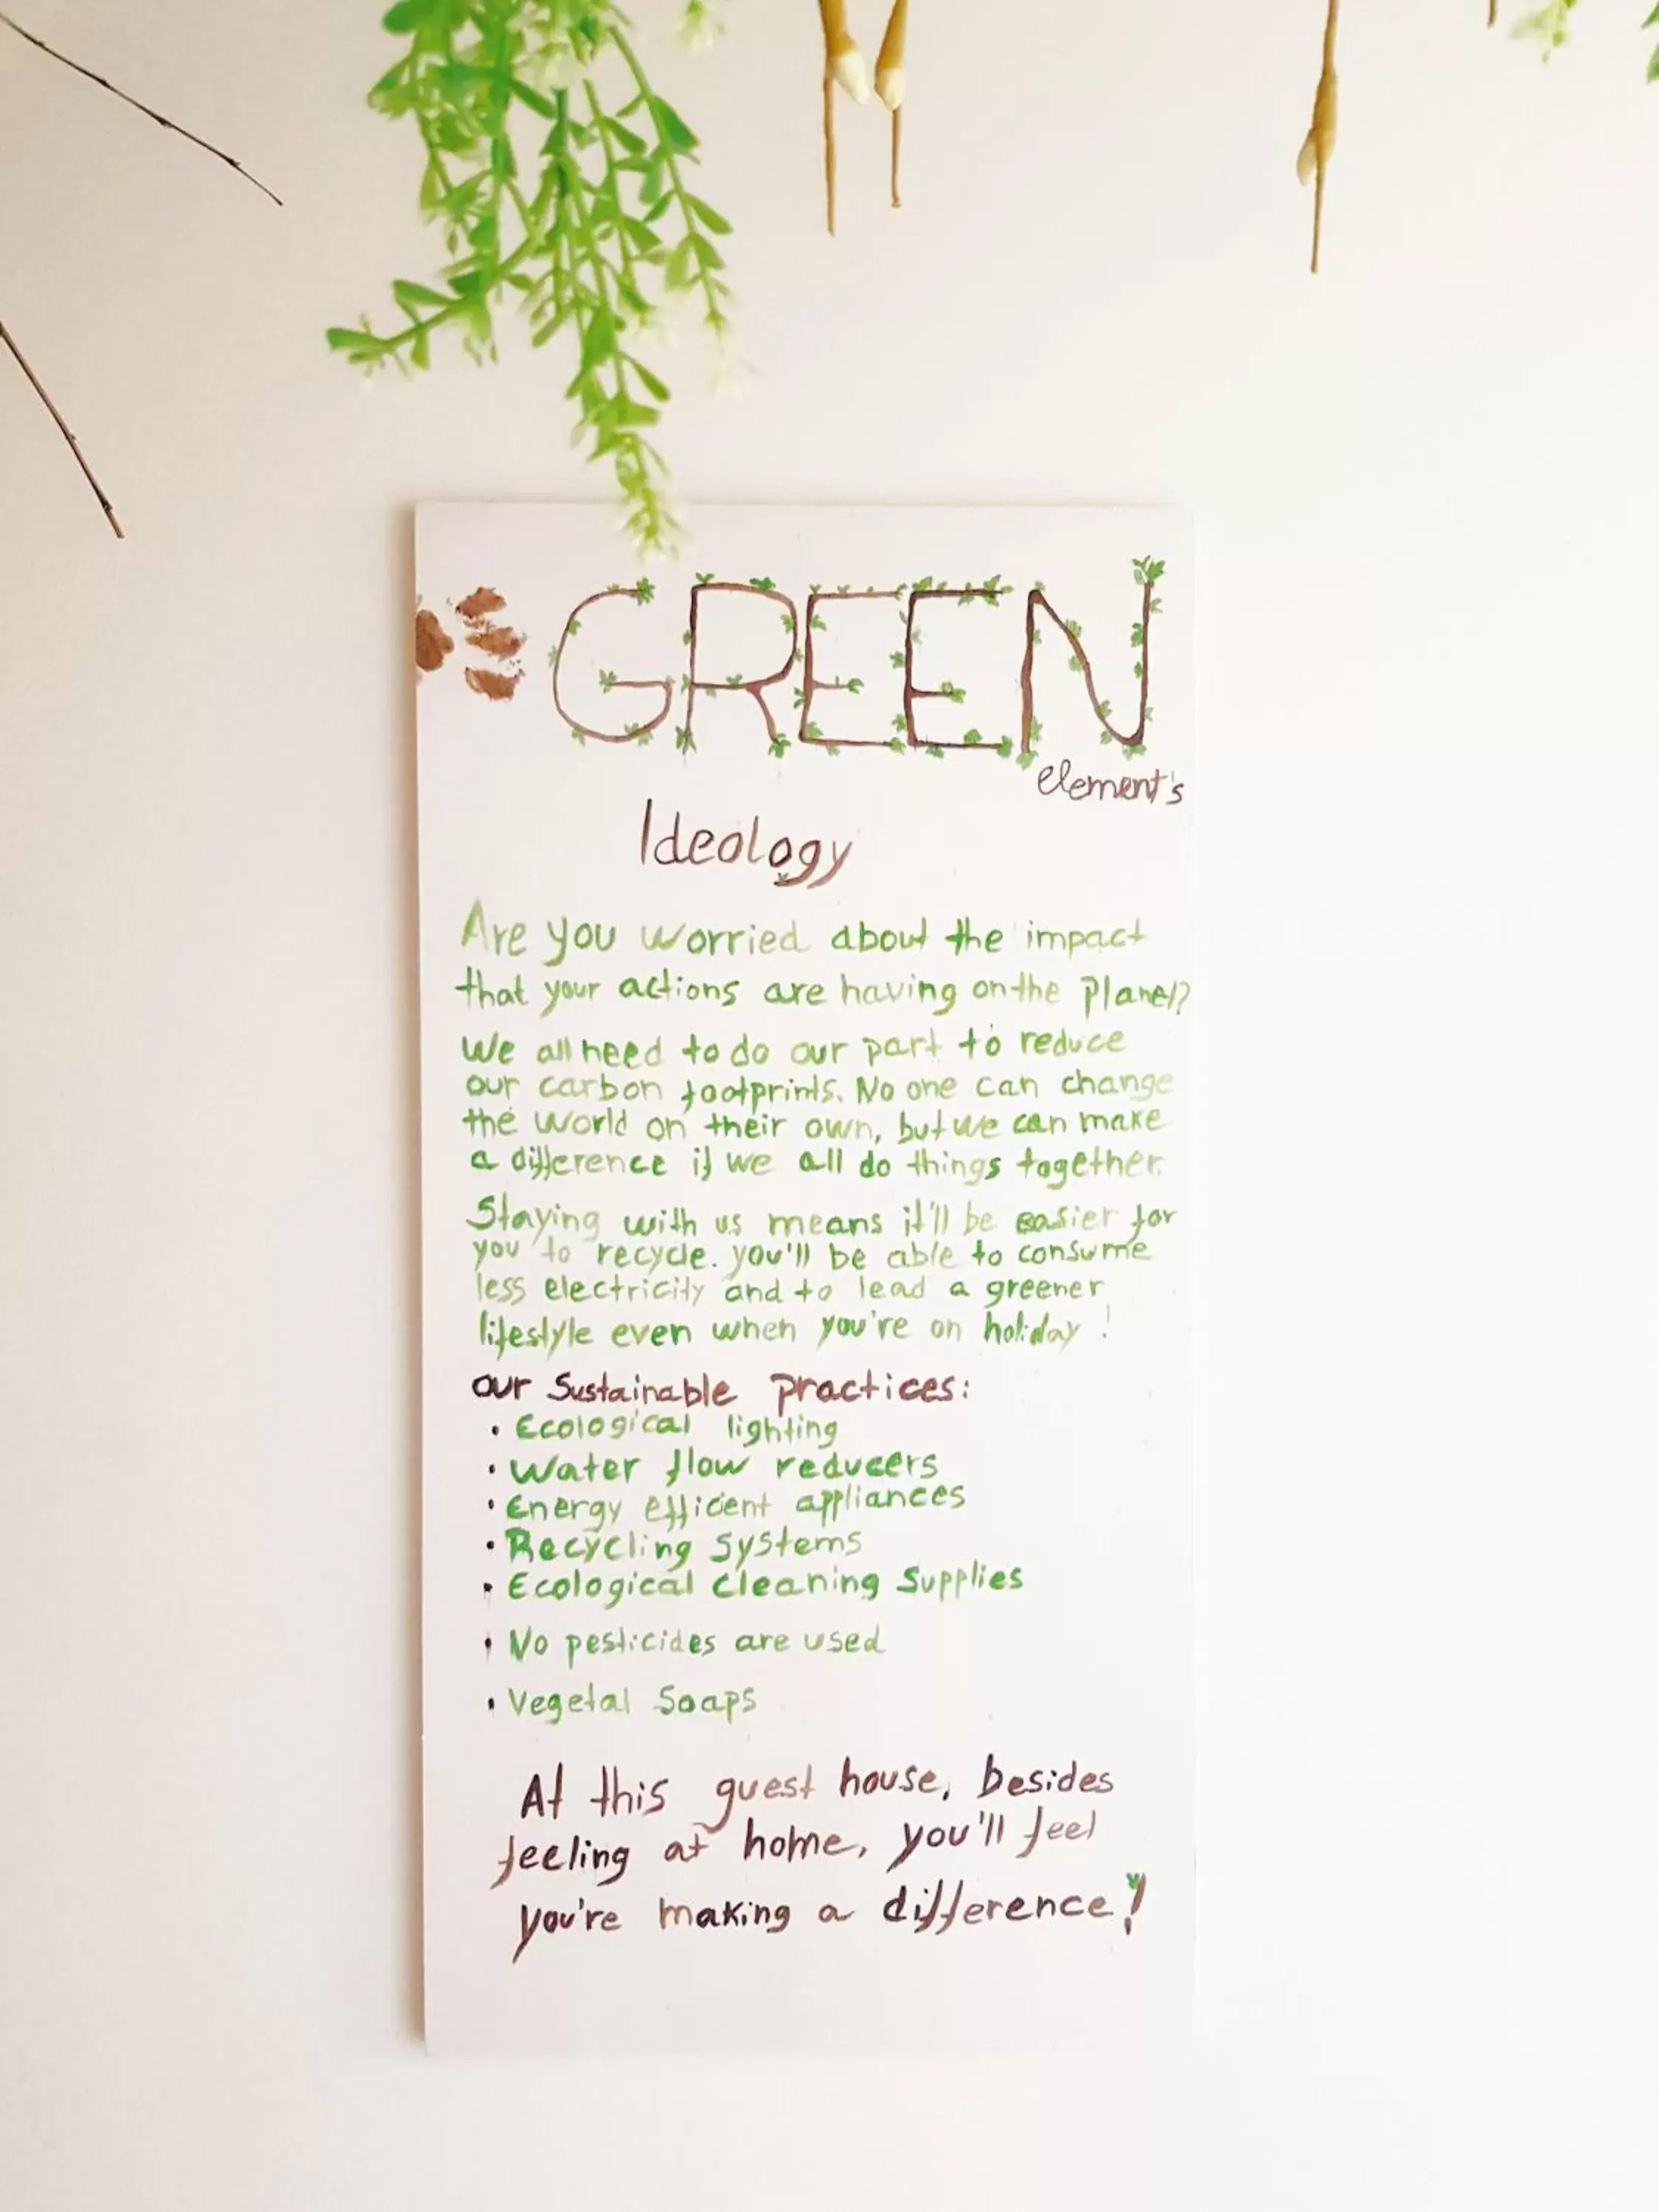 GREEN
element's
Ideology
Are you worried about the impact
that your actions are having on the planet?
We all need to do our part to reduce
our carbon footprints. No one can change
the world on their own, but we can make
a difference if we all do things together.
Staying with us means it'll be easier for
you to recycle. you'll be able to consume
less electricity and to lead a greener
lifestyle even when you're on holiday!
our Sustainable practices:
• Ecological lighting
• Water flow reducers
• Energy efficient appliances
• Recycling Systems
• Ecological cleaning Supplies
• No pesticides are used
• Vegetal Soaps
At this guest house, besides
feeling at home, you'll feel
you're making a difference!